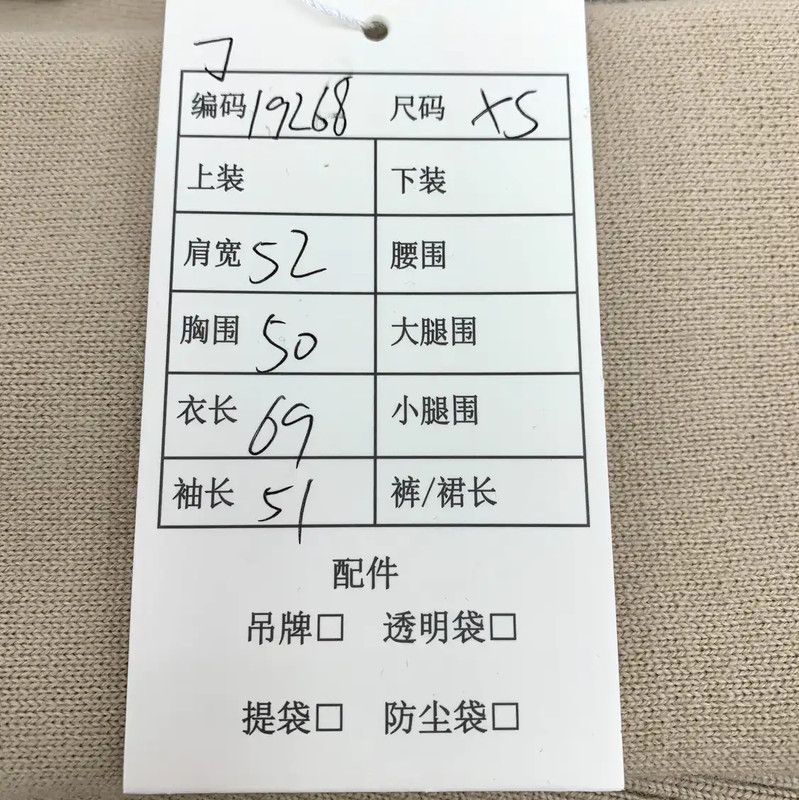 J
编码 19268 尺码 XS
上装 下装
肩宽 52 腰围
胸围 50 大腿围
衣长 69 小腿围
袖长 51 裤/裙长
配件
吊牌□ 透明袋□
提袋□ 防尘袋□